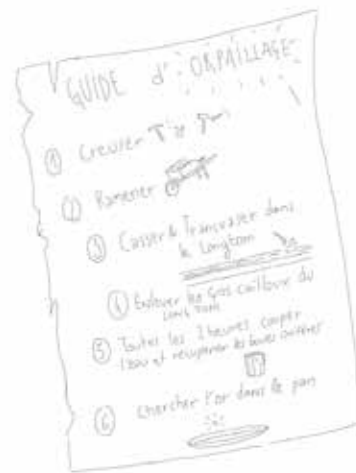 GUIDE d'ORPAILLAGE
① Creuser
② Ramener
③ Casser & Transvaser dans
le Longtom
④ Enlever les Gros cailloux du
LONG TOM
⑤ Toutes les 2 heures couper
l'eau et récupérer les boues aurifères
⑥ Chercher l'or dans le pan